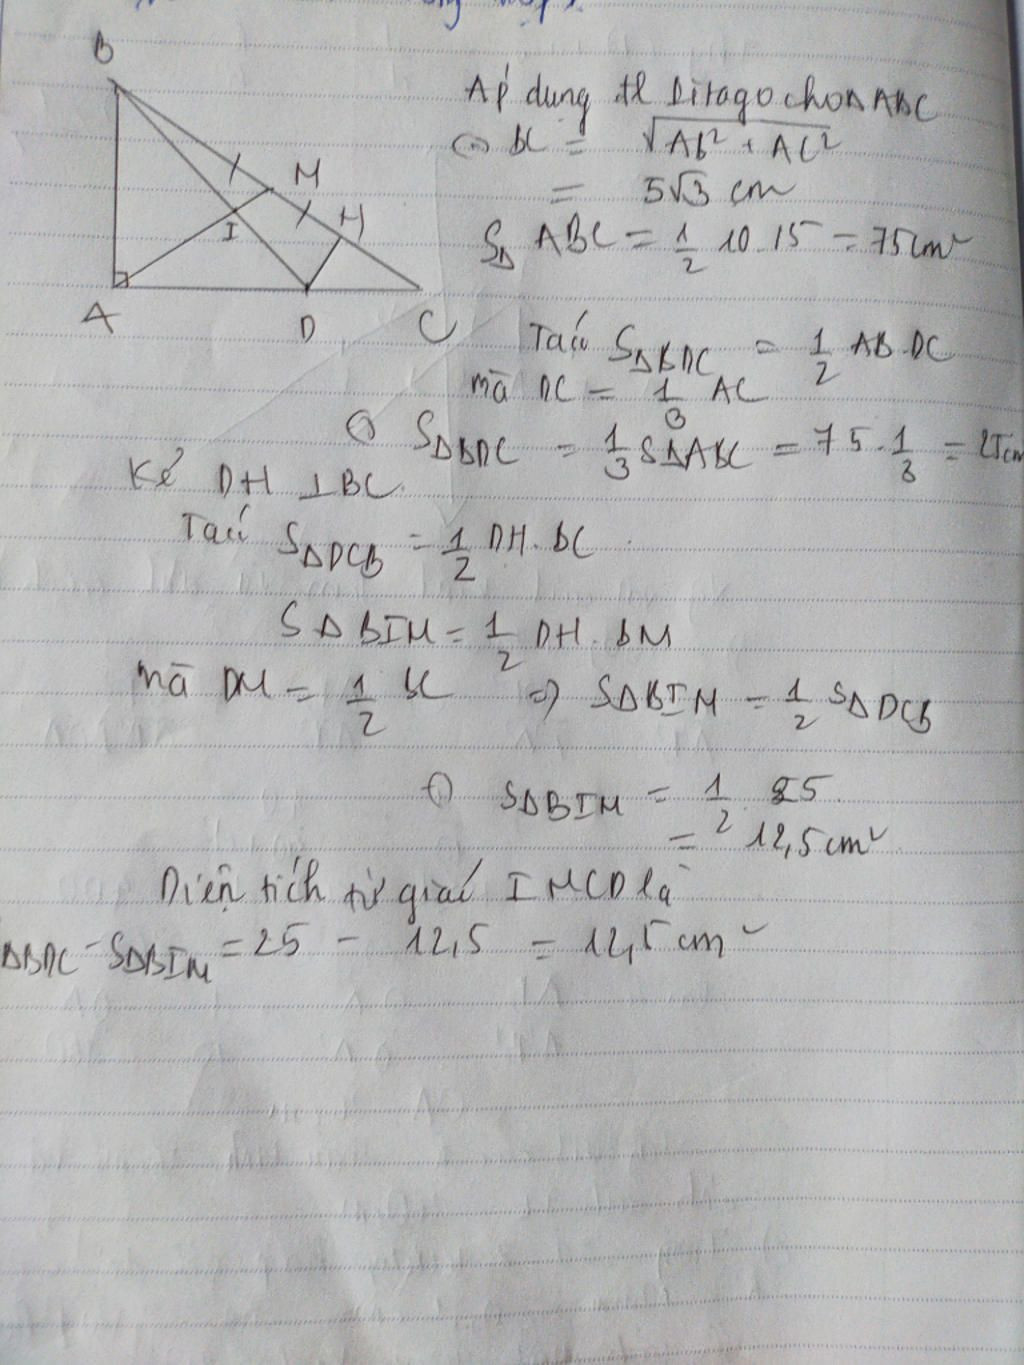 B
M
H
I
A
D
C
Áp dụng tl Pitago cho Δ ABC
BC = √AB² + AC²
= 5√3 cm
SΔ ABC = 1/2 10.15 = 75cm²
Ta có SΔBDC = 1/2 AB.DC
mà DC = 1/3 AC
SΔBDC = 1/3 SΔABC = 75.1/3 = 25cm
Kẻ DH ⊥BC
Ta có SΔDCB = 1/2 DH.BC
SΔBIM = 1/2 DH.BM
mà BM = 1/2 BC => SΔBIM = 1/2 SΔDCB
SΔBIM = 1/2 . 25
= 12,5cm²
Diện tích tứ giác IMCD là
ΔBDC - SΔBIM = 25 - 12,5 = 12,5cm²